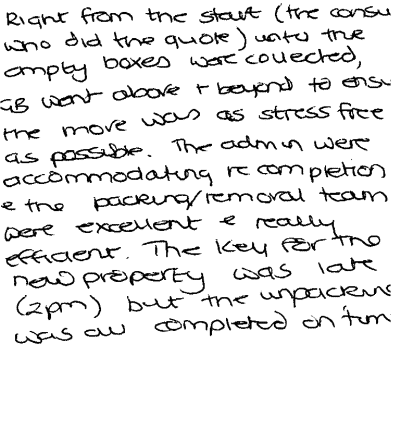 Right from the start (the consu
who did the quote) unto the
empty boxes were collected,
GB went above + beyond to ensu
the move was as stress free
as possible. The admin were
accommodating re completion
& the packing/removal team
were excellent & really
efficient. The key for the
new property was late
(2pm) but the unpacking
was all completed on tim